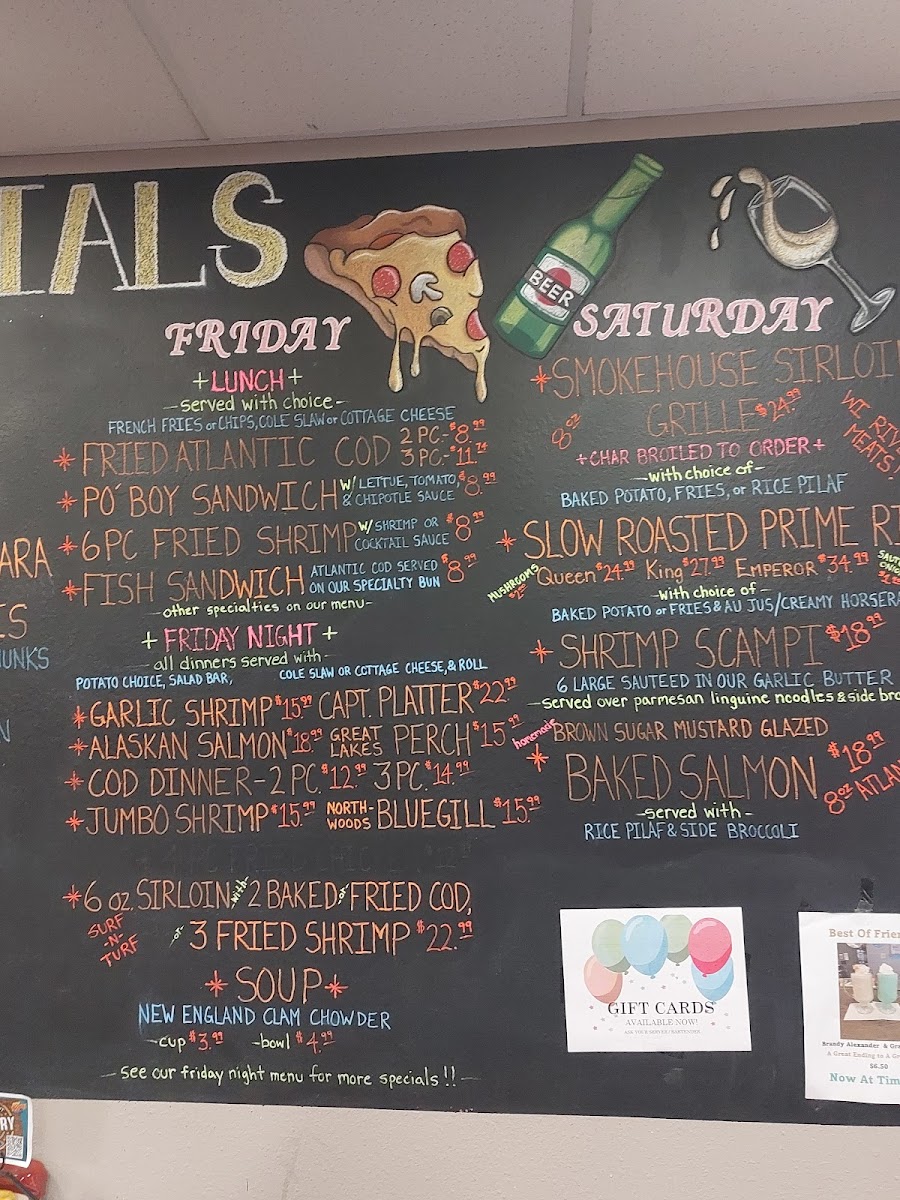 IALS
ARA
ES
HUNKS
N
BEER
FRIDAY
+LUNCH+
-served with choice-
FRENCH FRIES or CHIPS, COLE SLAW or COTTAGE CHEESE
* FRIED ATLANTIC COD 2 PC.-$8.99
3 PC.-$11.74
* PO'BOY SANDWICH W/ LETTUE, TOMATO, & CHIPOTLE SAUCE $8.99
* 6PC FRIED SHRIMP W/ SHRIMP OR COCKTAIL SAUCE $8.99
* FISH SANDWICH ATLANTIC COD SERVED ON OUR SPECIALTY BUN $8.99
-other specialties on our menu-
+ FRIDAY NIGHT +
-all dinners served with-
POTATO CHOICE, SALAD BAR, COLE SLAW OR COTTAGE CHEESE, & ROLL
* GARLIC SHRIMP $15.99 CAPT. PLATTER $22.99
* ALASKAN SALMON $18.99 GREAT LAKES PERCH $15.99
* COD DINNER-2 PC. $12.99 3 PC. $14.99
* JUMBO SHRIMP $15.99 NORTH-WOODS BLUEGILL $15.99
* 6 oz. SIRLOIN with 2 BAKED or FRIED COD,
SURF -N- TURF
or 3 FRIED SHRIMP $22.99
* SOUP *
NEW ENGLAND CLAM CHOWDER
-cup $3.99 -bowl $4.99
-see our friday night menu for more specials!!-
SATURDAY
* SMOKEHOUSE SIRLOI
GRILLE $24.99
8oz
WI RIV
MEATS!
+CHAR BROILED TO ORDER+
-with choice of-
BAKED POTATO, FRIES, or RICE PILAF
* SLOW ROASTED PRIME RI
MUSHROOMS
Queen $24.99 King $27.99 EMPEROR $34.99
-with choice of-
BAKED POTATO or FRIES & AU JUS/CREAMY HORSERA
* SHRIMP SCAMPI $18.99
6 LARGE SAUTEED IN OUR GARLIC BUTTER
-served over parmesan linguine noodles & side bro
homemade BROWN SUGAR MUSTARD GLAZED
* BAKED SALMON $18.99
8oz ATLAN
-served with-
RICE PILAF & SIDE BROCCOLI
GIFT CARDS
AVAILABLE NOW!
ASK YOUR SERVER / BARTENDER
Best Of Frie
Brandy Alexander & Gra
A Great Ending to A Gr
$6.50
Now At Tim
RY